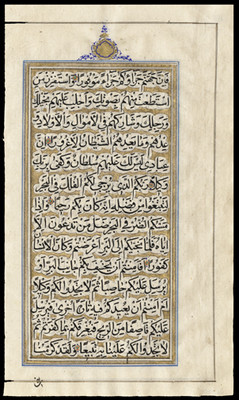 فإن جهنم جزاؤكم جزاء موفورا واستفزز من
استطعت منهم بصوتك وأجلب عليهم بخيلك
ورجلك وشاركهم في الأموال والأولاد
وعدهم وما يعدهم الشيطان إلا غرورا إن
عبادي ليس لك عليهم سلطان وكفى بربك
وكيلا ربكم الذي يزجي لكم الفلك في البحر
لتبتغوا من فضله إنه كان بكم رحيما وإذا
مسكم الضر في البحر ضل من تدعون إلا
إياه فلما نجيكم إلى البر أعرضتم وكان الإنسان
كفورا أفأمنتم أن يخسف بكم جانب البر أو
يرسل عليكم حاصبا ثم لا تجدوا لكم وكيلا
أم أمنتم أن يعيدكم فيه تارة أخرى فيرسل
عليكم قاصفا من الريح فيغرقكم بما كفرتم ثم
لا تجدوا لكم علينا به تبيعا ولقد كرمنا